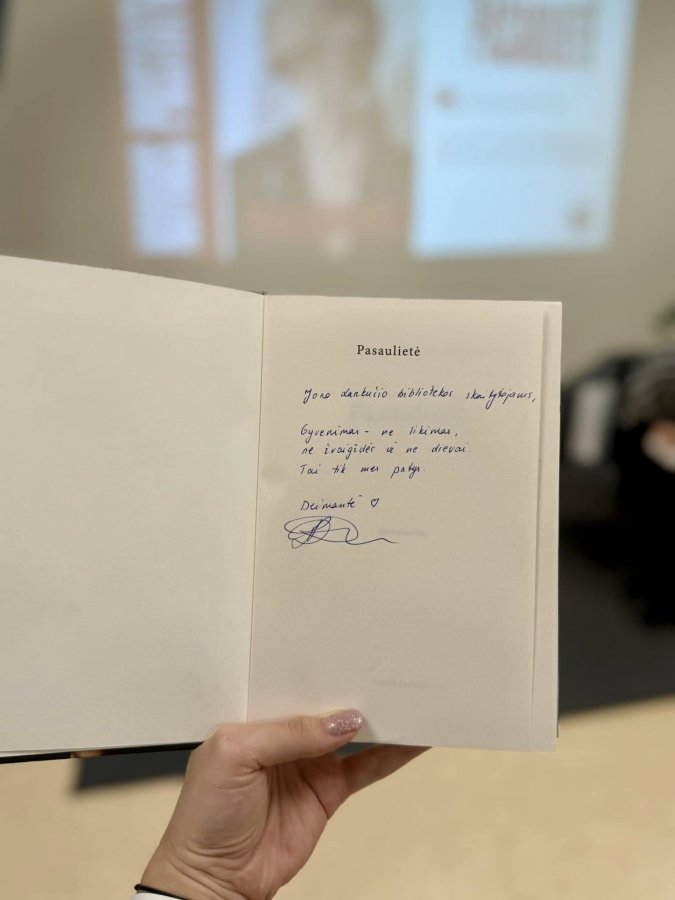 Pasaulietė
Jono Lankučio bibliotekos skaitytojams,
Gyvenimas – ne likimas,
ne žvaigždės ir ne dievai.
Tai tik mes patys.
Deimantė ♡